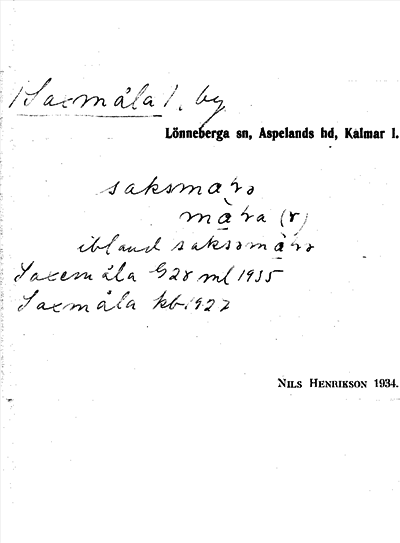 /Saxmåla/, by
Lönneberga sn, Aspelands hd, Kalmar l.
saksmàɫɜ
màɫa (r)
ibland saksɜmàɫɜ
Saxemåla G28 ml 1935
Saxmåla kb 1922
NILS HENRIKSON 1934.